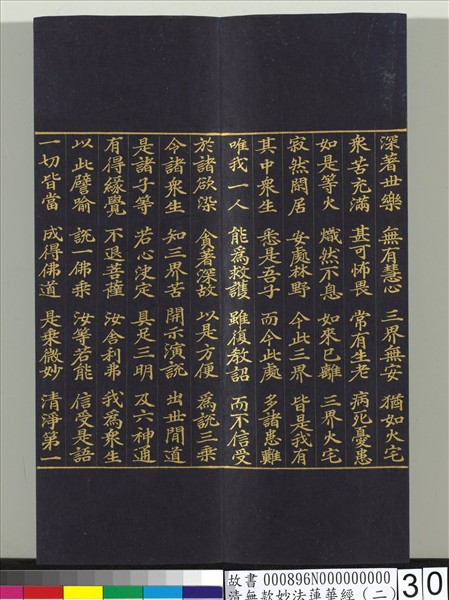 深著世樂　無有慧心　三界無安　猶如火宅
眾苦充滿　甚可怖畏　常有生老　病死憂患
如是等火　熾然不息　如來已離　三界火宅
寂然閑居　安處林野　今此三界　皆是我有
其中眾生　悉是吾子　而今此處　多諸患難
唯我一人　能為救護　雖復教詔　而不信受
於諸欲染　貪著深故　以是方便　為說三乘
令諸眾生　知三界苦　開示演說　出世間道
是諸子等　若心決定　具足三明　及六神通
有得緣覺　不退菩薩　汝舍利弗　我為眾生
以此譬喻　說一佛乘　汝等若能　信受是語
一切皆當　成得佛道　是乘微妙　清淨第一
故書 000896N000000000
清無款妙法蓮華經（二）
30